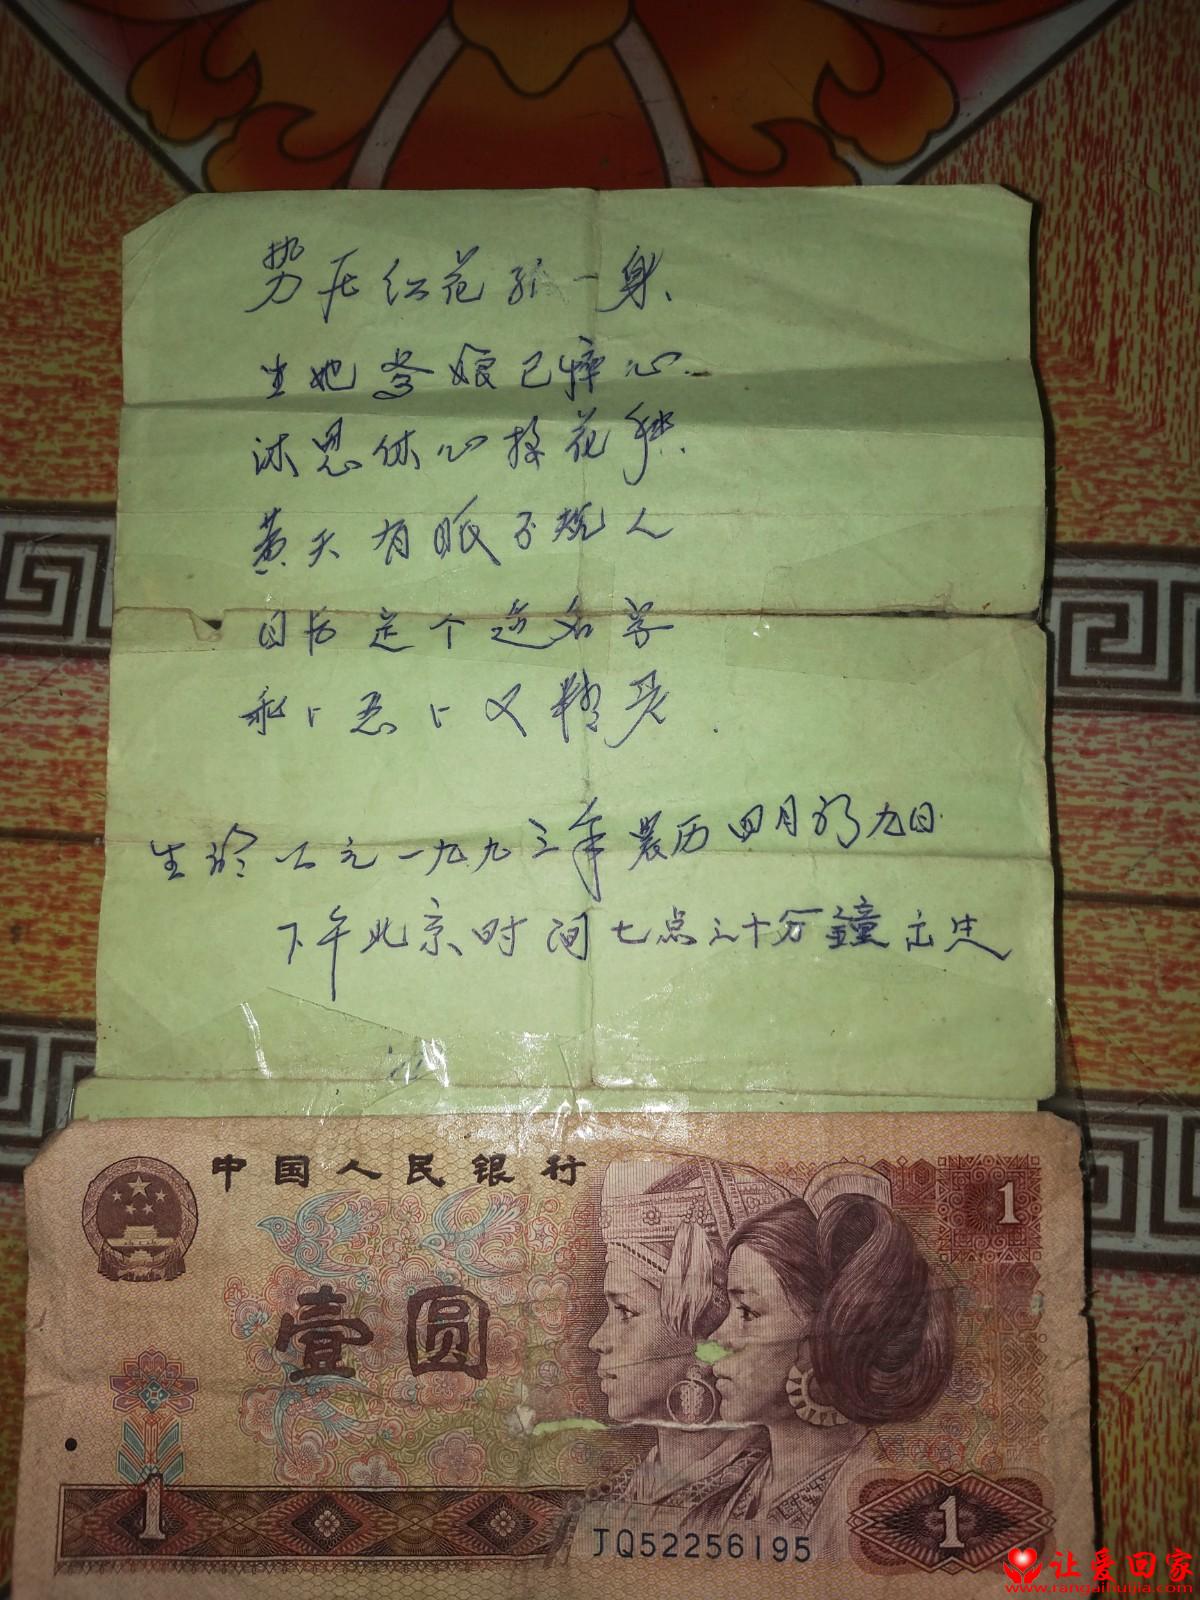 势压红花 一身、
生她爹娘已碎心.
沐恩休心接花 、
黄天有眼不 人
日后 个 名学
和 恩 又精灵.
生於公元一九九三年农历四月初九日
下午北京时间七点三十分鐘出生
中国人民银行
1
壹圆
1
1
JQ52256195
让爱回家
www.rangaihuijia.com